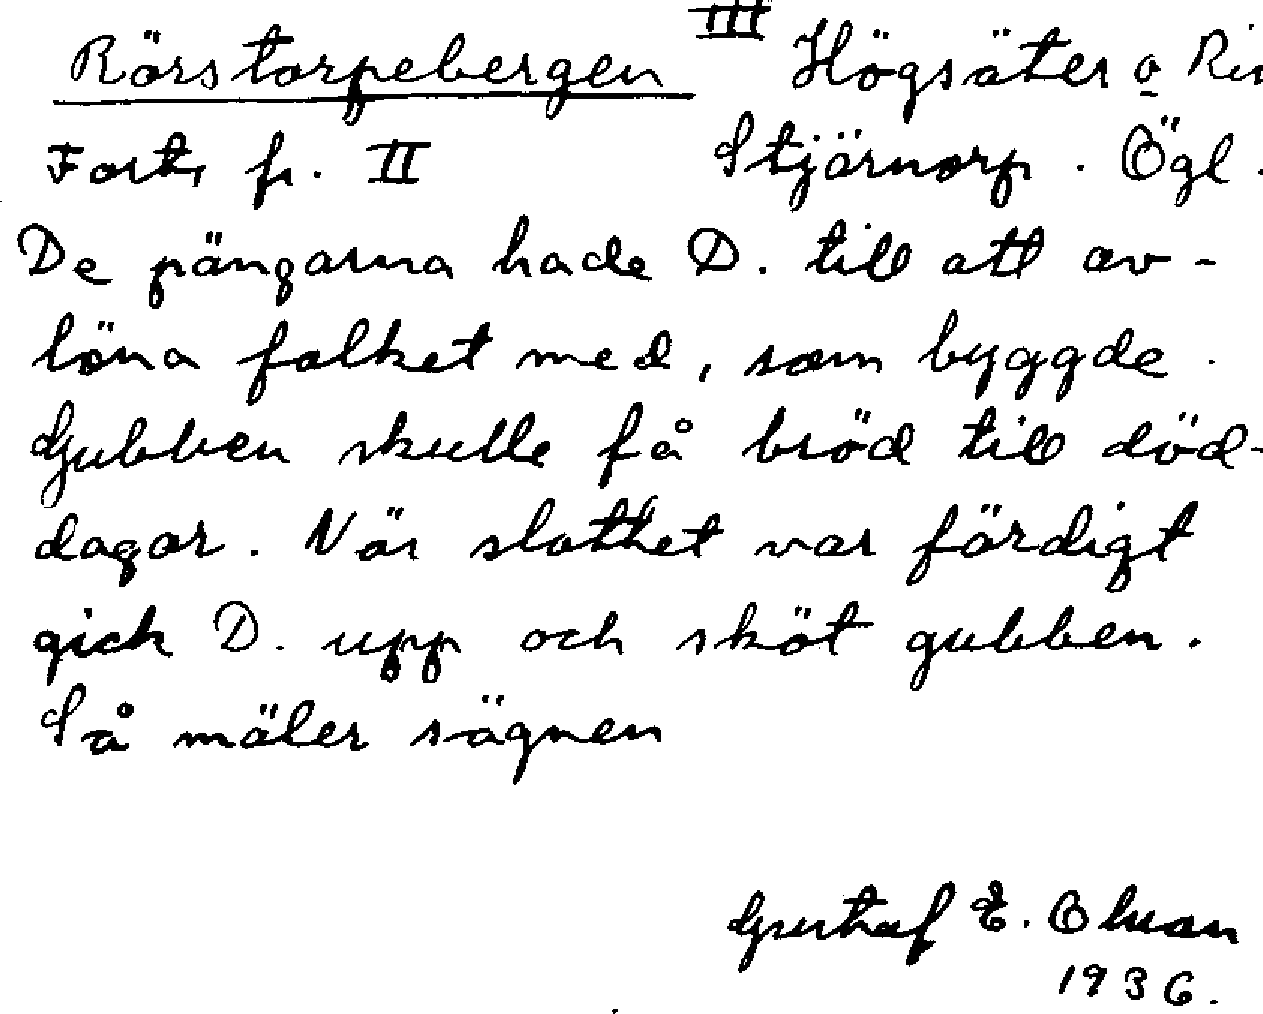 III
Rörstorpebergen Högsäter o
Forts, fr. II Stjärnorp. Ögl.
De pängarna hade D. till att av-
löna folket med, som byggde.
Gubben skulle få bröd till död-
dagar. När slottet var färdigt
gick D. upp och sköt gubben.
Så mäler sägnen
Gustaf E. Olsson
1936.